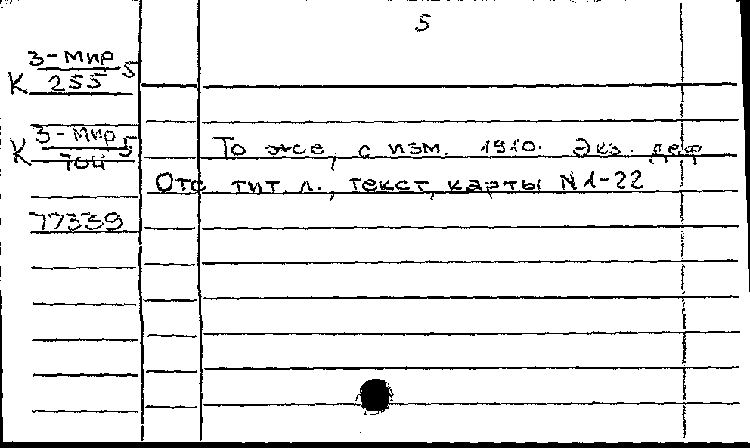 5
3-Мир
К 255 5
3-Мир
К 704 5
То же, с изм. 1910. Экз. деф
Отс. тит. л., текст, карты N1-22
77339